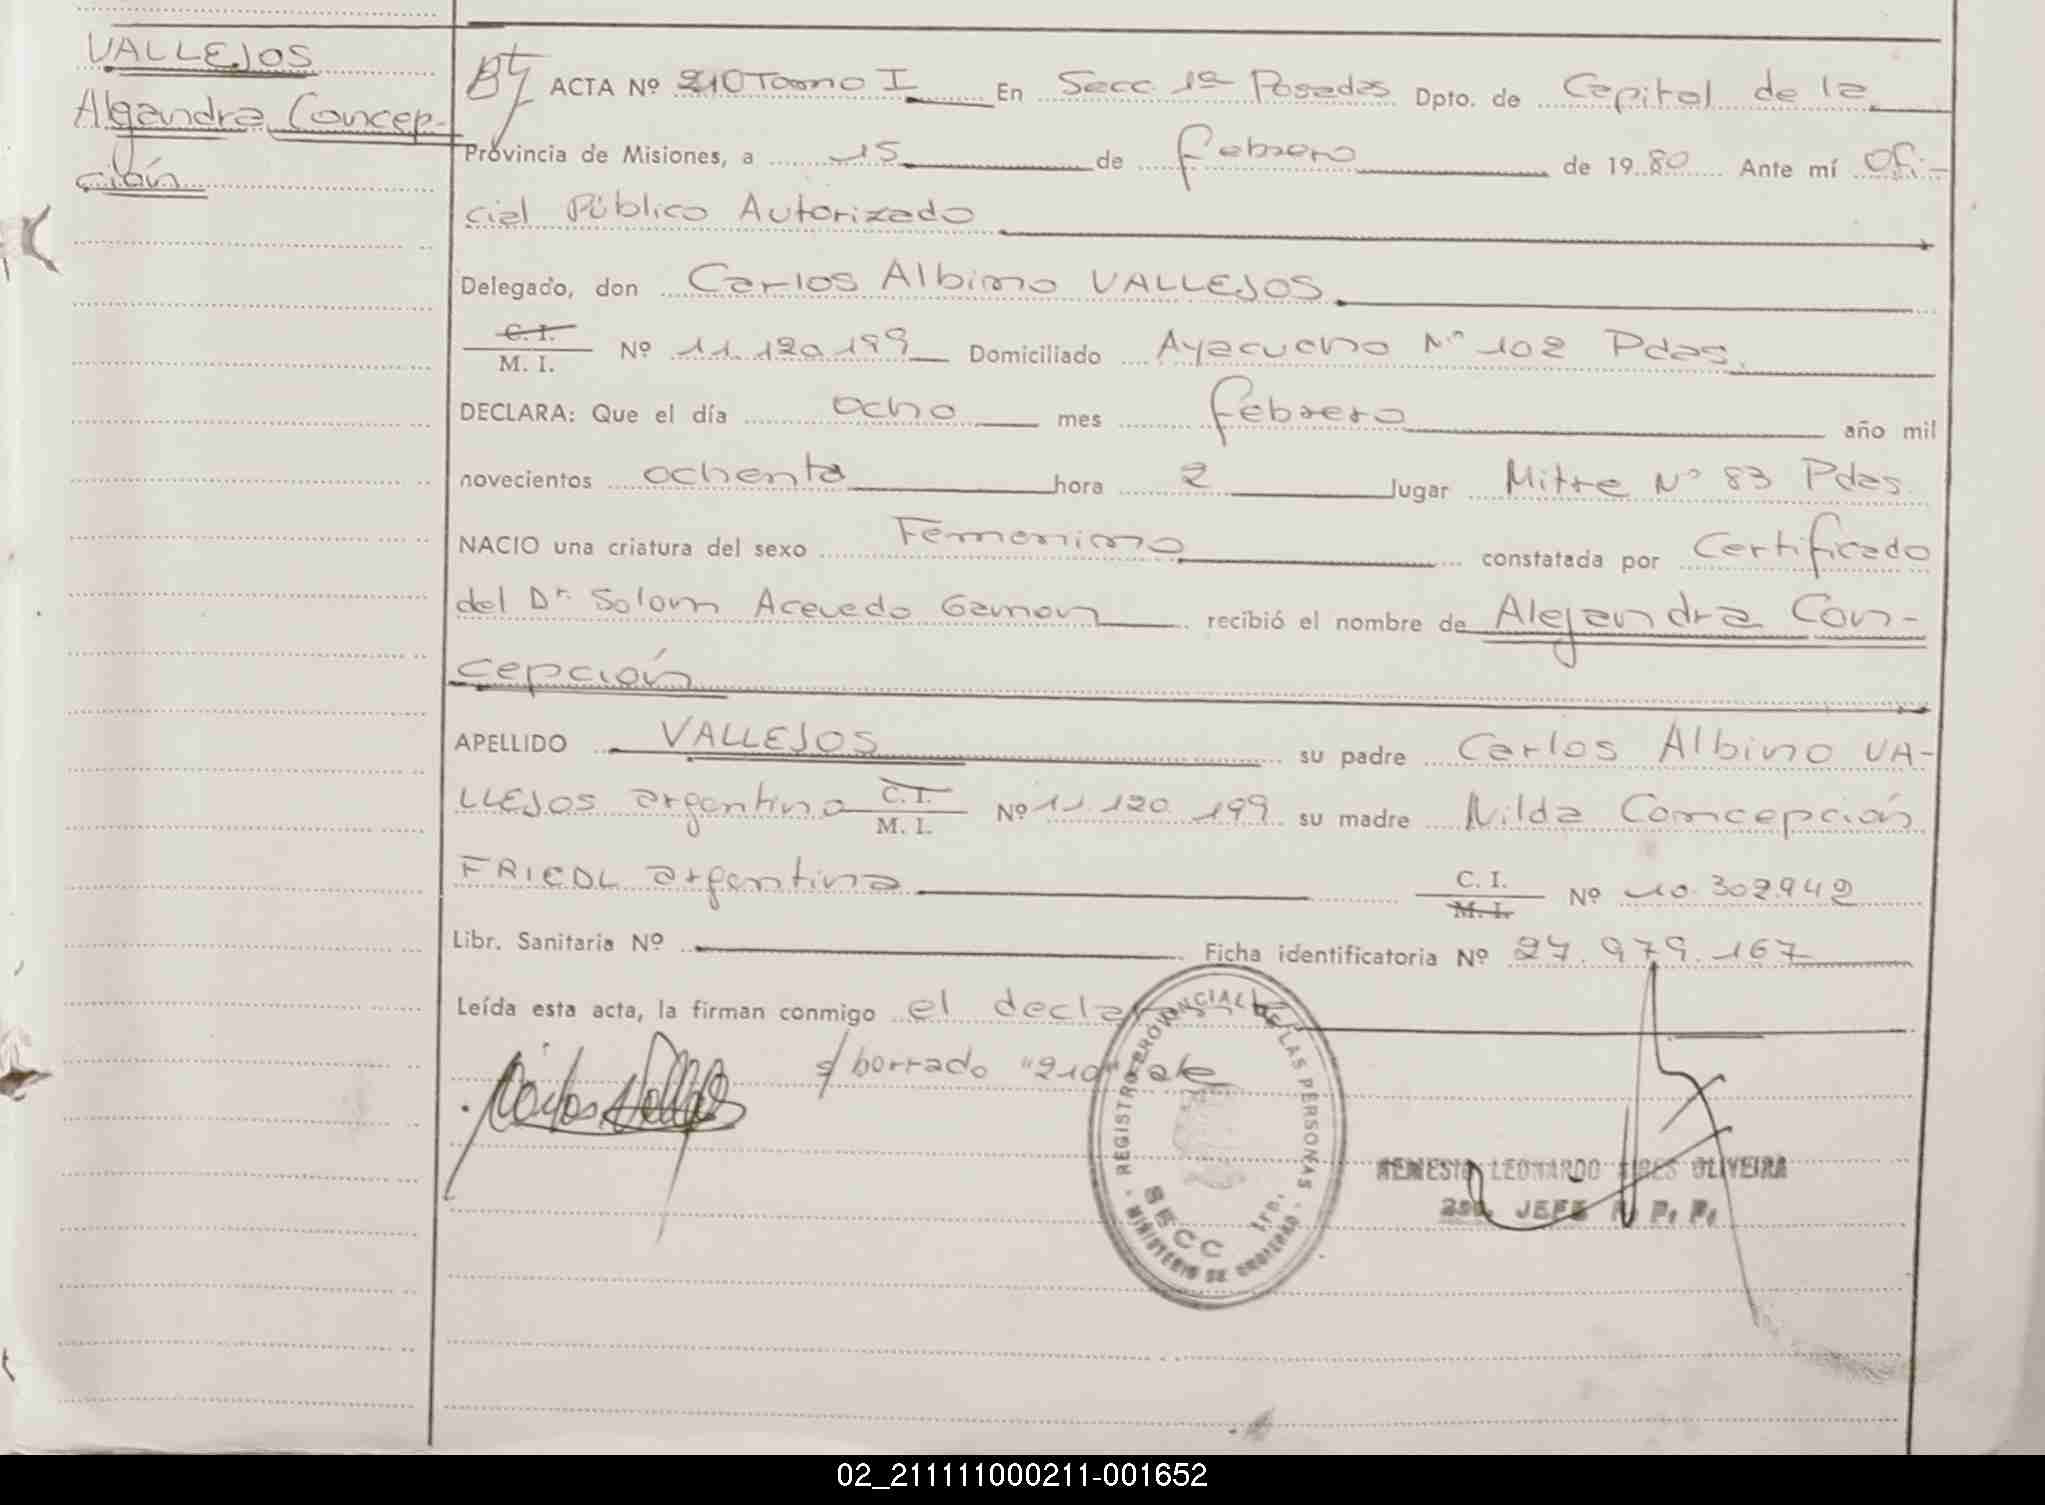 VALLEJOS
Alejandra Concep-
ción
ACTA Nº 210 Tomo I En Secc. 1ª Posadas Dpto. de Capital de la
Provincia de Misiones, a 15 de febrero de 1980 Ante mí Ofi-
cial Público Autorizado
Delegado, don Carlos Albino VALLEJOS
C. I.
M. I. Nº 11.120.199 Domiciliado Ayacucho Nº 102 Pdas.
DECLARA: Que el día ocho mes febrero año mil
novecientos ochenta hora 2 lugar Mitre Nº 83 Pdas.
NACIO una criatura del sexo Femenino constatada por Certificado
del Dr. Acevedo recibió el nombre de Alejandra Con-
cepción
APELLIDO VALLEJOS su padre Carlos Albino VA-
LLEJOS argentino C. I. M. I. Nº 11.120.199 su madre Nilda Concepción
FRIEDL argentina C. I. M. I. Nº 10.302.942
Libr. Sanitaria Nº Ficha identificatoria Nº 27.979.167
Leída esta acta, la firman conmigo el declarante
s/borrado "210" vale
Carlos Vallejos
REGISTRO PROVINCIAL DE LAS PERSONAS
MINISTERIO DE GOBIERNO
SECC 1ra.
NEMESIO LEONARDO AIRES OLIVEIRA
2do. JEFE R. P. P.
02_211111000211-001652